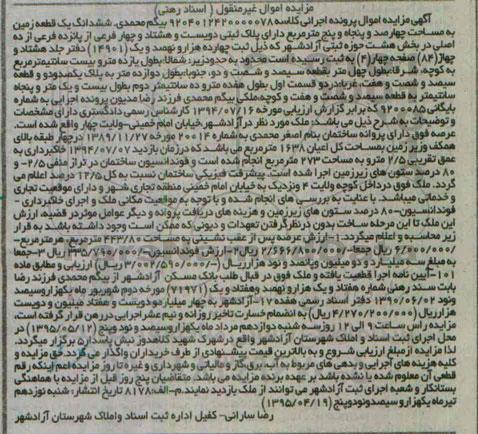 مزایده اموال غیرمنقول ( اسناد رهنی)
آگهی مزایده اموال پرونده اجرائی کلاسه ۹۲۰۴۰۱۲۴۲۰۰۰۰۰۷۸ بیگم محمدی. ششدانگ یک قطعه زمین
به مساحت چهارصد و پنجاه و پنج مترمربع دارای پلاک ثبتی دویست و هشتاد و چهار فرعی از پانزده فرعی از ده
اصلی در بخش هشت حوزه ثبتی آزادشهر که ذیل ثبت چهارده هزار و نهصد و یک (۱۴۹۰۱) دفتر جلد هشتاد و
چهار(۸۴) صفحه چهار(۴) به ثبت رسیده است محدود به حدود زیر: شمالا:بطول یازده مترو بیست سانتیمتر مربع
به کوچه، شرقا:بطول چهل متر بقطعه سیصد و شصت و دو، جنوبا:بطول دوازده متر به پلاک یکصدودو و قطعه
سیصد و شصت و غربا:دردو قسمت اول بطول هفده مترو ده سانتیمتر دوم بطول بیست و یک متر و پنجاه
سانتیمتر به قطعه سیصد و شصت و هفت و کوچه،ملکی بیگم محمدی فرزند رضا مدیون پرونده اجرایی به شماره
بایگانی ۹۲۰۰۰۸۵ که برابر گزارش ارزیابی مورخه ۱۳۹۴/۰۷/۱۶ کارشناس رسمی دادگستری دارای مشخصات
و توضیحات به شرح ذیل می باشد: ملک مورد نظر در آزادشهر خیابان امام خمینی-ولایت چهار واقع شده است.
عرصه فوق دارای پروانه ساختمان بنام اصغر محمدی به شماره ۲۰۰۱۴ مورخه ۱۳۸۹/۱۱/۲۷ در چهار طبقه بالای
همکف وزیر زمین بمساحت کل اعیان ۱۶۳۸ مترمربع می باشد که درزمان بازدید ۱۳۹۴/۰۷/۰۷ خاکبرداری به
عمق تقریبی ۲/۵ مترو به مساحت ۲۷۳ مترمربع انجام شده است و فوندانسیون ساختمان در تراز منفی ۲/۵- و
۸۰ درصد ستون های زیرزمین اجرا شده است. پیشرفت فیزیکی ساختمان نسبت به کل ۱۲/۵ درصد اعلام می
گردد. ملک فوق درداخل کوچه ولایت ۴ ونزدیک به خیابان امام خمینی منطقه تجاری شهر و دارای موقعیت تجاری
و خدماتی میباشد. با عنایت به بررسی های انجام شده و با توجه به موقعیت مکانی ملک و اجرای خاکبرداری -
فوندانسیون-۸۰ درصد ستون های زیرزمین و هزینه های دریافت پروانه و دیگر عوامل موثردر قضیه، ارزش
این ملک تا این مرحله ساخت بدون درنظرگرفتن تعهدات و دیونی که ممکن است وجود داشته باشد به قرار
زیر محاسبه و اعلام میگردد:۱-ارزش عرصه پس از عقب نشینی به مساحت ۴۴۳/۸۰ مترمربع، هر مترمربع-
/۶/۰۰۰/۰۰۰ ریال جمعا-/۲/۶۶۲/۸۰۰/۰۰۰ ریال ۲-ارزش فوندانسیون-/۳۳۵/۷۹۰/۰۰۰ ریال ۳-جمعا
۱۰۱-آیین نامه اجرا قطعیت یافته و ملک فوق در قبال طلب بانک مسکن آزادشهر از بیگم محمدی فرزند رضا
بابت سند رهنی شماره هفتاد و یک هزار و نهصد وهفتاد و یک (۷۱۹۷۱) مورخه دوم شهریور ماه یکهزاروسیصد
ونود ۱۳۹۰/۰۶/۰۲ دفتر اسناد رسمی هفده ۱۷-آزادشهر به چهار میلیاردو دویست و هفتاد میلیون و دویست
هزارریال(۴/۲۷۰/۲۰۰/۰۰۰ ریال) به انضمام خسارت تاخیر روزانه و نیم عشراجرایی دررهن قرار گرفته است،
مزایده رأس ساعت ۹ الی ۱۲ روزسه شنبه دوازدهم مرداد ماه یکهزاروسیصد و نود وپنج (۱۳۹۵/۰۵/۱۲) در
محل اجرای ثبت اسناد و املاک شهرستان آزادشهر واقع درشهرک شهید کلاهدوز نبش پاسدار۵ برگزار میگردد.
لذا مزایده ازمبلغ ارزیابی شروع و به بالاترین قیمت پیشنهادی از طرف خریداران واگذار می گردد. حق مزایده و
کلیه هزینه های اجرایی و بدهی های مربوط به آب، برق،گاز و مالیاتی و شهرداری و غیره تا روز مزایده اعم اینکه رقم
قطعی آن معلوم شده یا نشده باشد بر عهده برنده مزایده می باشد. متقاضیان پنج روز قبل از مزایده با هماهنگی
بستانکار و شعبه اجرای ثبت آزادشهر می توانند از ملک بازدید نمایند.م-الف:۸۱۷۸ تاریخ انتشار: شنبه نوزدهم
تیرماه یکهزاروسیصدونودوپنج (۱۳۹۵/۰۴/۱۹)
رضا سارانی- کفیل اداره ثبت اسناد واملاک شهرستان آزادشهر